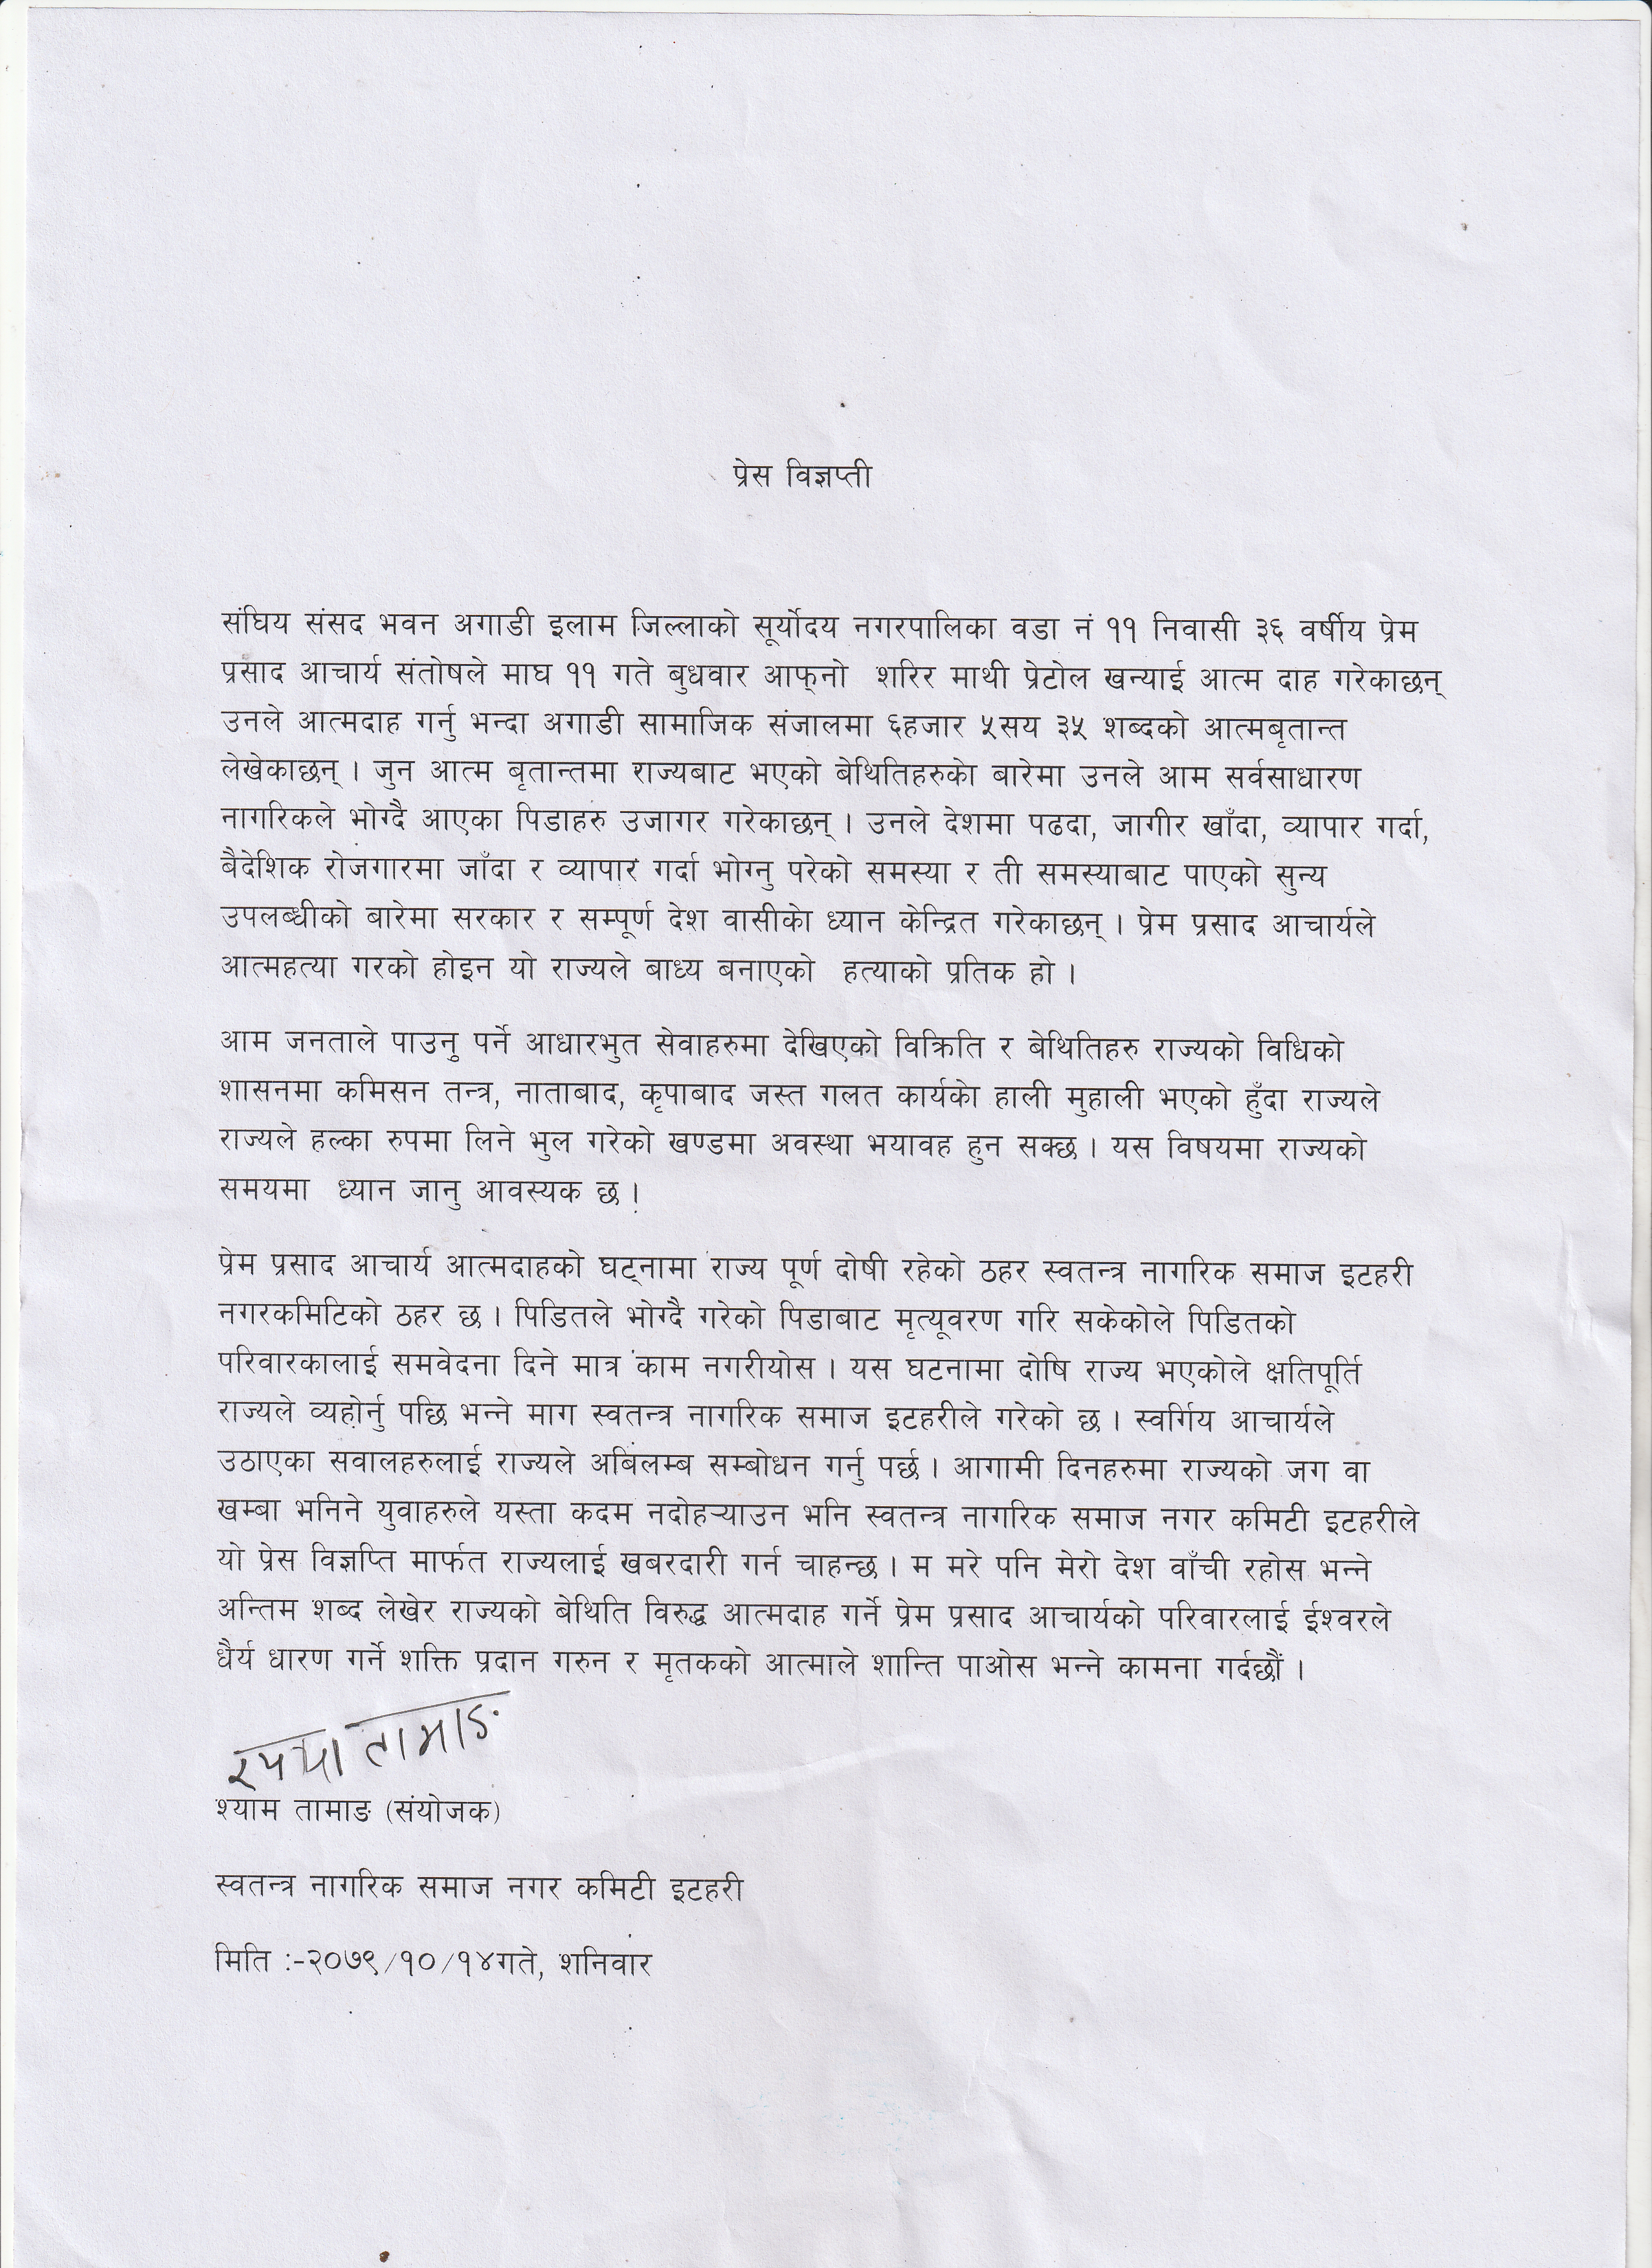 प्रेस विज्ञप्ती
संघिय संसद भवन अगाडी इलाम जिल्लाको सूर्योदय नगरपालिका वडा नं ११ निवासी ३६ वर्षीय प्रेम
प्रसाद आचार्य संतोषले माघ ११ गते बुधवार आफ्‌नो शरिर माथी प्रेटोल खन्याई आत्म दाह गरेकाछन्
उनले आत्मदाह गर्नु भन्दा अगाडी सामाजिक संजालमा ६हजार ५सय ३५ शब्दको आत्मबृतान्त
लेखेकाछन् । जुन आत्म बृतान्तमा राज्यबाट भएको बेथितिहरुकेा बारेमा उनले आम सर्वसाधारण
नागरिकले भोग्दै आएका पिडाहरु उजागर गरेकाछन् । उनले देशमा पढदा, जागीर खाँदा, व्यापार गर्दा,
बैदेशिक रोजगारमा जाँदा र व्यापार गर्दा भोग्नु परेको समस्या र ती समस्याबाट पाएको सुन्य
उपलब्धीको बारेमा सरकार र सम्पूर्ण देश वासीकेा ध्यान केन्द्रित गरेकाछन् । प्रेम प्रसाद आचार्यले
आत्महत्या गरको होइन यो राज्यले बाध्य बनाएको हत्याको प्रतिक हो ।
आम जनताले पाउनु पर्ने आधारभुत सेवाहरुमा देखिएको विक्रिति र बेथितिहरु राज्यको विधिको
शासनमा कमिसन तन्त्र, नाताबाद, कृपाबाद जस्त गलत कार्यकेा हाली मुहाली भएको हुँदा राज्यले
राज्यले हल्का रुपमा लिने भुल गरेको खण्डमा अवस्था भयावह हुन सक्छ । यस विषयमा राज्यको
समयमा ध्यान जानु आवस्यक छ ।
प्रेम प्रसाद आचार्य आत्मदाहको घट्‌नामा राज्य पूर्ण दोषी रहेको ठहर स्वतन्त्र नागरिक समाज इटहरी
नगरकमिटिको ठहर छ । पिडितले भोग्दै गरेको पिडाबाट मृत्यूवरण गरि सकेकोले पिडितको
परिवारकालाई समवेदना दिने मात्र काम नगरीयोस । यस घटनामा दोषि राज्य भएकोले क्षतिपूर्ति
राज्यले व्यहोर्नु पछि भन्ने माग स्वतन्त्र नागरिक समाज इटहरीले गरेको छ । स्वर्गिय आचार्यले
उठाएका सवालहरुलाई राज्यले अबिलम्ब सम्बोधन गर्नु पर्छ । आगामी दिनहरुमा राज्यको जग वा
खम्बा भनिने युवाहरुले यस्ता कदम नदोहर्‍याउन भनि स्वतन्त्र नागरिक समाज नगर कमिटी इटहरीले
यो प्रेस विज्ञप्ति मार्फत राज्यलाई खबरदारी गर्न चाहन्छ । म मरे पनि मेरो देश वाँची रहोस भन्ने
अन्तिम शब्द लेखेर राज्यको बेथिति विरुद्ध आत्मदाह गर्ने प्रेम प्रसाद आचार्यको परिवारलाई ईश्वरले
धैर्य धारण गर्ने शक्ति प्रदान गरुन र मृतकको आत्माले शान्ति पाओस भन्ने कामना गर्दछौं ।
तामाङ
श्याम तामाङ (संयोजक)
स्वतन्त्र नागरिक समाज नगर कमिटी इटहरी
मिति :-२०७९/१०/१४गते, शनिवार